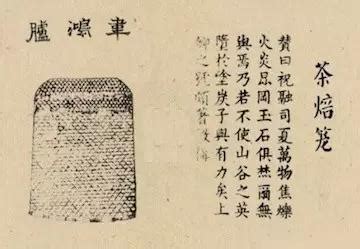 茶焙笼
贊曰祝融司夏萬物焦爍
火炎昆岡玉石俱焚爾無
與焉乃若不使山谷之英
墮於塗炭子與有力矣上
卿之號頗著微稱
韋鴻臚